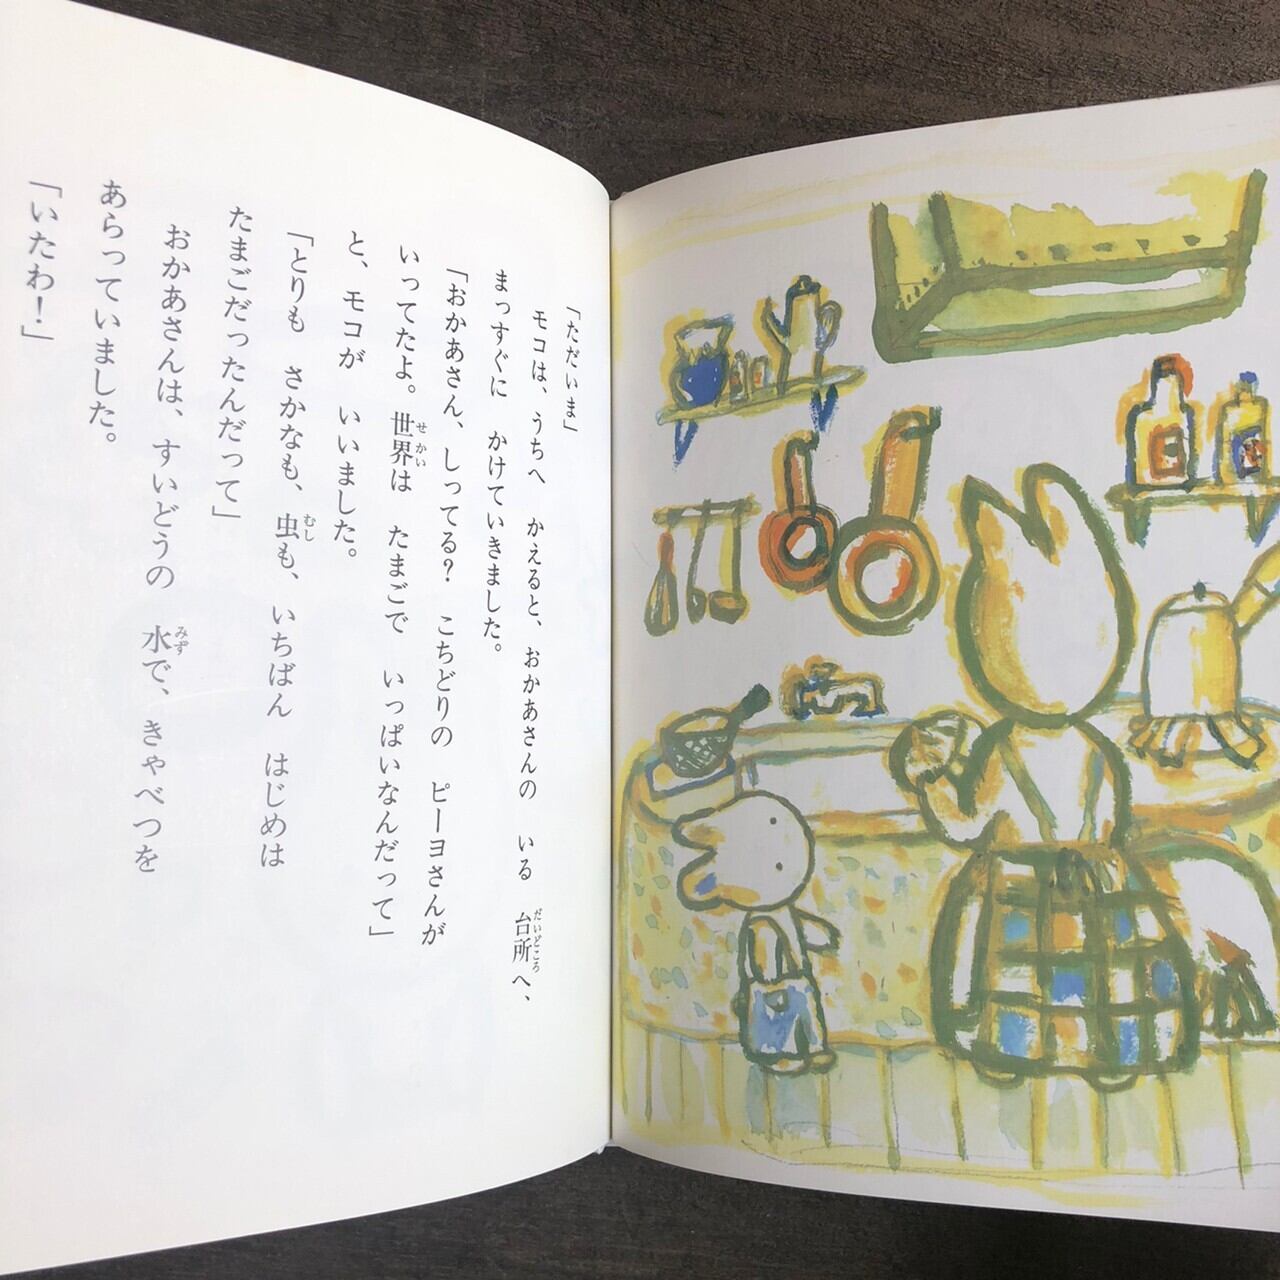 「ただいま」
モコは、うちへ　かえると、おかあさんの　いる　台所へ、
まっすぐに　かけていきました。
「おかあさん、しってる？　こちどりの　ピーヨさんが
いってたよ。世界は　たまごで　いっぱいなんだって」
と、モコが　いいました。
「とりも　さかなも、虫も、いちばん　はじめは
たまごだったんだって」
おかあさんは、すいどうの　水で、きゃべつを
あらっていました。
「いたわ！」